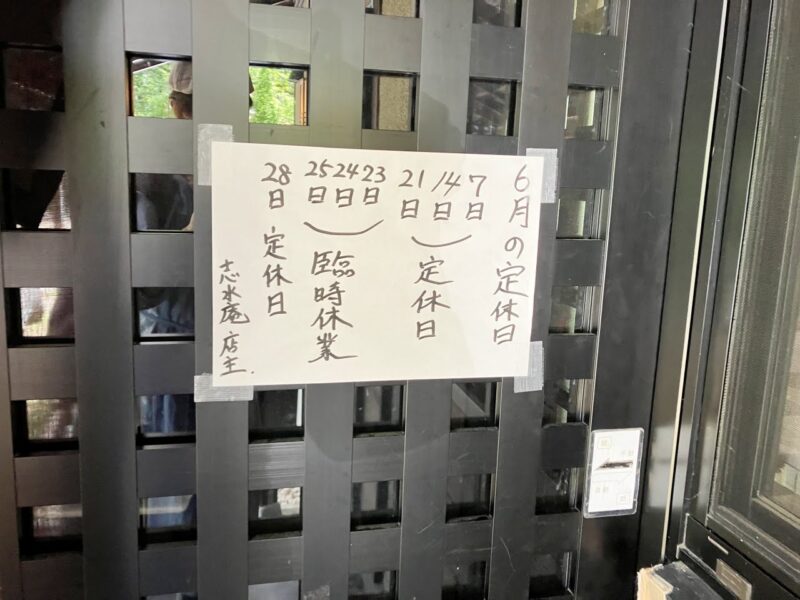 6月の定休日
7日
14日
21日
定休日
23日
24日
25日
臨時休業
28日 定休日
志水庵 店主.